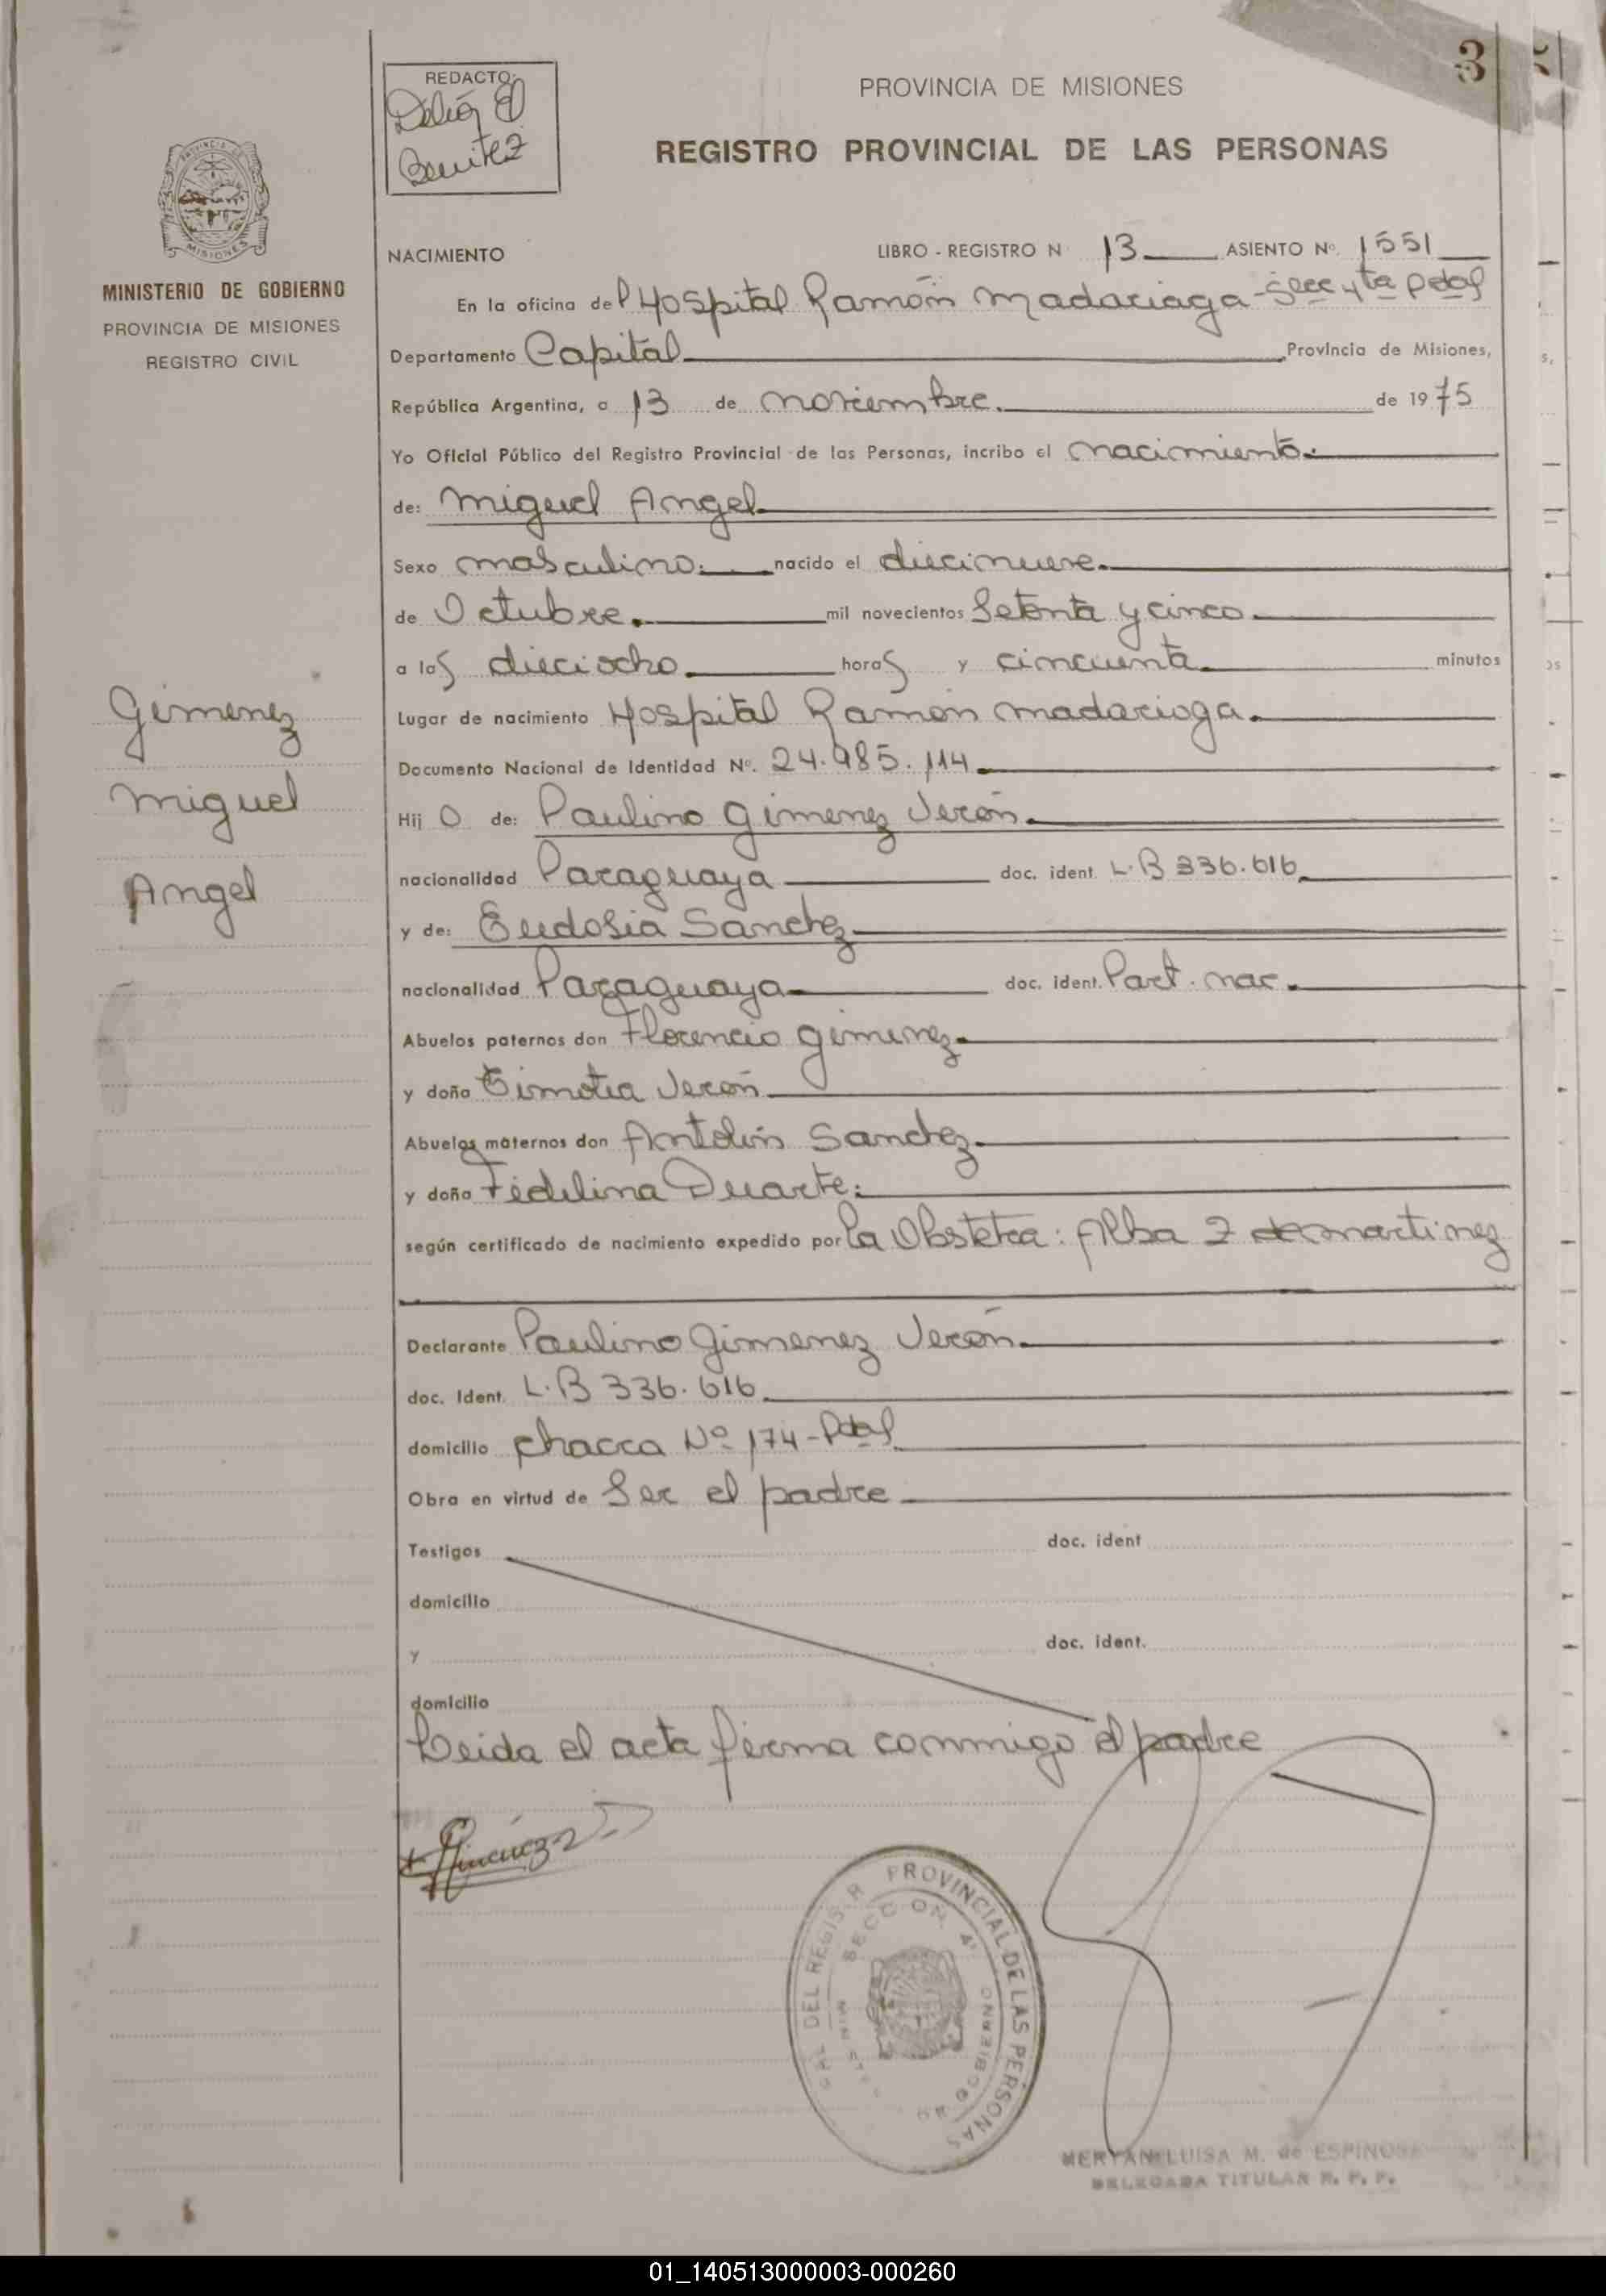 3
REDACTO:
Delia E
Benitez
PROVINCIA DE MISIONES
REGISTRO PROVINCIAL DE LAS PERSONAS
MISIONES
MINISTERIO DE GOBIERNO
PROVINCIA DE MISIONES
REGISTRO CIVIL
NACIMIENTO LIBRO - REGISTRO N 13 ASIENTO Nº. 1551
En la oficina del Hospital Ramón Madariaga - Secc 4ta Pdas
Departamento Capital Provincia de Misiones,
República Argentina, a 13 de noviembre. de 1975
Yo Oficial Público del Registro Provincial de las Personas, incribo el nacimiento.
de: Miguel Angel
Sexo masculino. nacido el diecinueve.
de Octubre. mil novecientos Setenta y cinco
a las dieciocho horas y cincuenta minutos
Lugar de nacimiento Hospital Ramón Madariaga.
Documento Nacional de Identidad Nº. 24.985.114
Hij o de: Paulino Gimenez Verón.
nacionalidad Paraguaya doc. ident. L.B 336.616
y de: Eudosia Sanchez
nacionalidad Paraguaya doc. ident. Part. nac.
Abuelos paternos don Florencio Gimenez
y doña Timotea Verón
Abuelos maternos don Antolin Sanchez
y doña Fidelina Duarte.
según certificado de nacimiento expedido por la Obstetra: Alba Z de Martinez
Declarante Paulino Gimenez Verón
doc. Ident. L.B 336.616
domicilio chacra Nº 174 - Pdas
Obra en virtud de Ser el padre
Testigos doc. ident
domicilio
y doc. ident.
domicilio
Leida el acta firma conmigo el padre
Gimenez
Gimenez
Miguel
Angel
DEL REGIS PROVINCIAL DE LAS PERSONAS
SECCION 4ª
GOBIERNO
LUISA M. de ESPINOSA
DELEGADA TITULAR R. P. P.
01_140513000003-000260